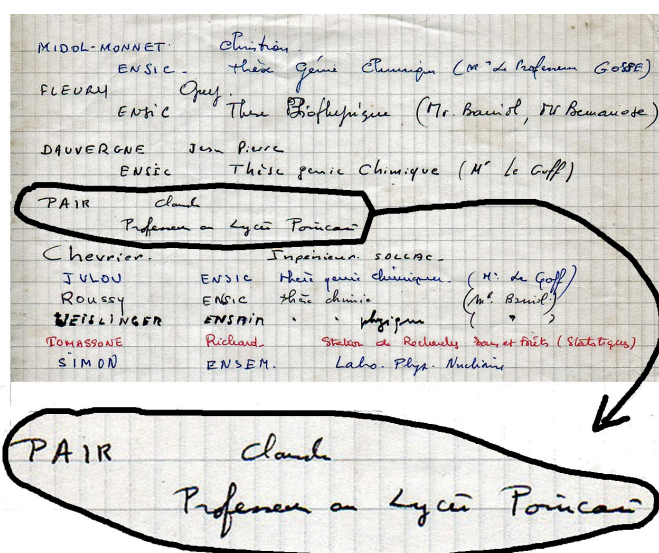 MIDOL-MONNET. Christian.
ENSIC - Thèse Génie Chimique (Mr Le Professeur GOSSE)
FLEURY
ENSIC These Biophysique (Mr. Bariol,
DAUVERGNE Jean Pierre
ENSIC Thèse genie Chimique (Mr Le Goff)
PAIR Claude
Professeur au Lycée Poincaré
Chevrier. Ingénieur SOLLAC-
JULOU ENSIC thèse genie chimique. (Mr. Le Goff)
Roussy ENSIC thèse chimie (Mr. Bariol.)
WEISLINGER ENSAIA " " physique ( " )
TOMASSONE Richard Station de Recherches Eaux et Forêts (Statistiques)
SIMON ENSEM. Labo. Phys. Nucléaire
PAIR Claude
Professeur au Lycée Poincaré